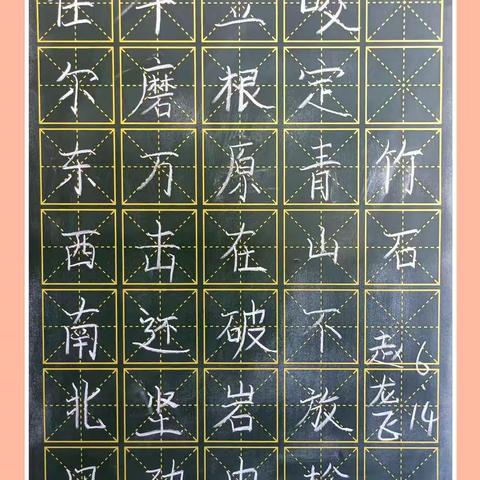 竹石
赵龙飞
6、14
咬定青山不放松
立根原在破岩中
千磨万击还坚劲
任尔东西南北风